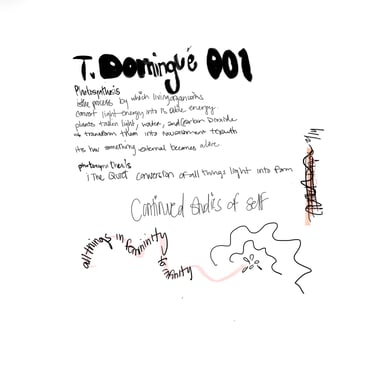 T. Domingué 001
Photosynthesis
the process by which living organisms
convert light energy into usable energy.
plants taken light, water, and Carbon Dioxide
& transform them into nourishment + growth
its how something external becomes alive.
photosynthesis
: The Quiet conversion of all things light into form
Continued Studies of self
all things in femininity
to infinity